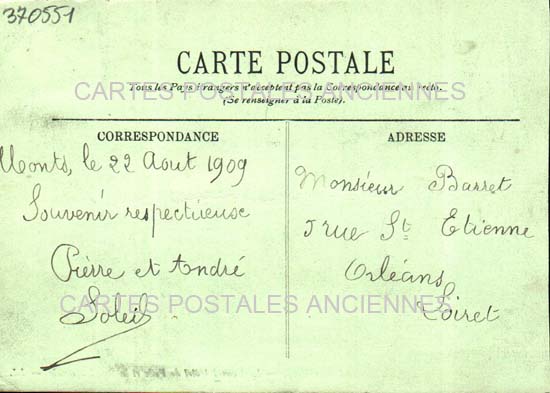 370551
CARTE POSTALE
Tous les Pays étrangers n'acceptent pas la Correspondance au recto.
(Se renseigner à la Poste).
CARTES POSTALES ANCIENNES
CORRESPONDANCE
Monts, le 22 Aout 1909
Souvenir respectueuse
Pierre et André
Soleil
ADRESSE
Monsieur Barret
5 rue St Etienne
Orléans
Loiret
CARTES POSTALES ANCIENNES